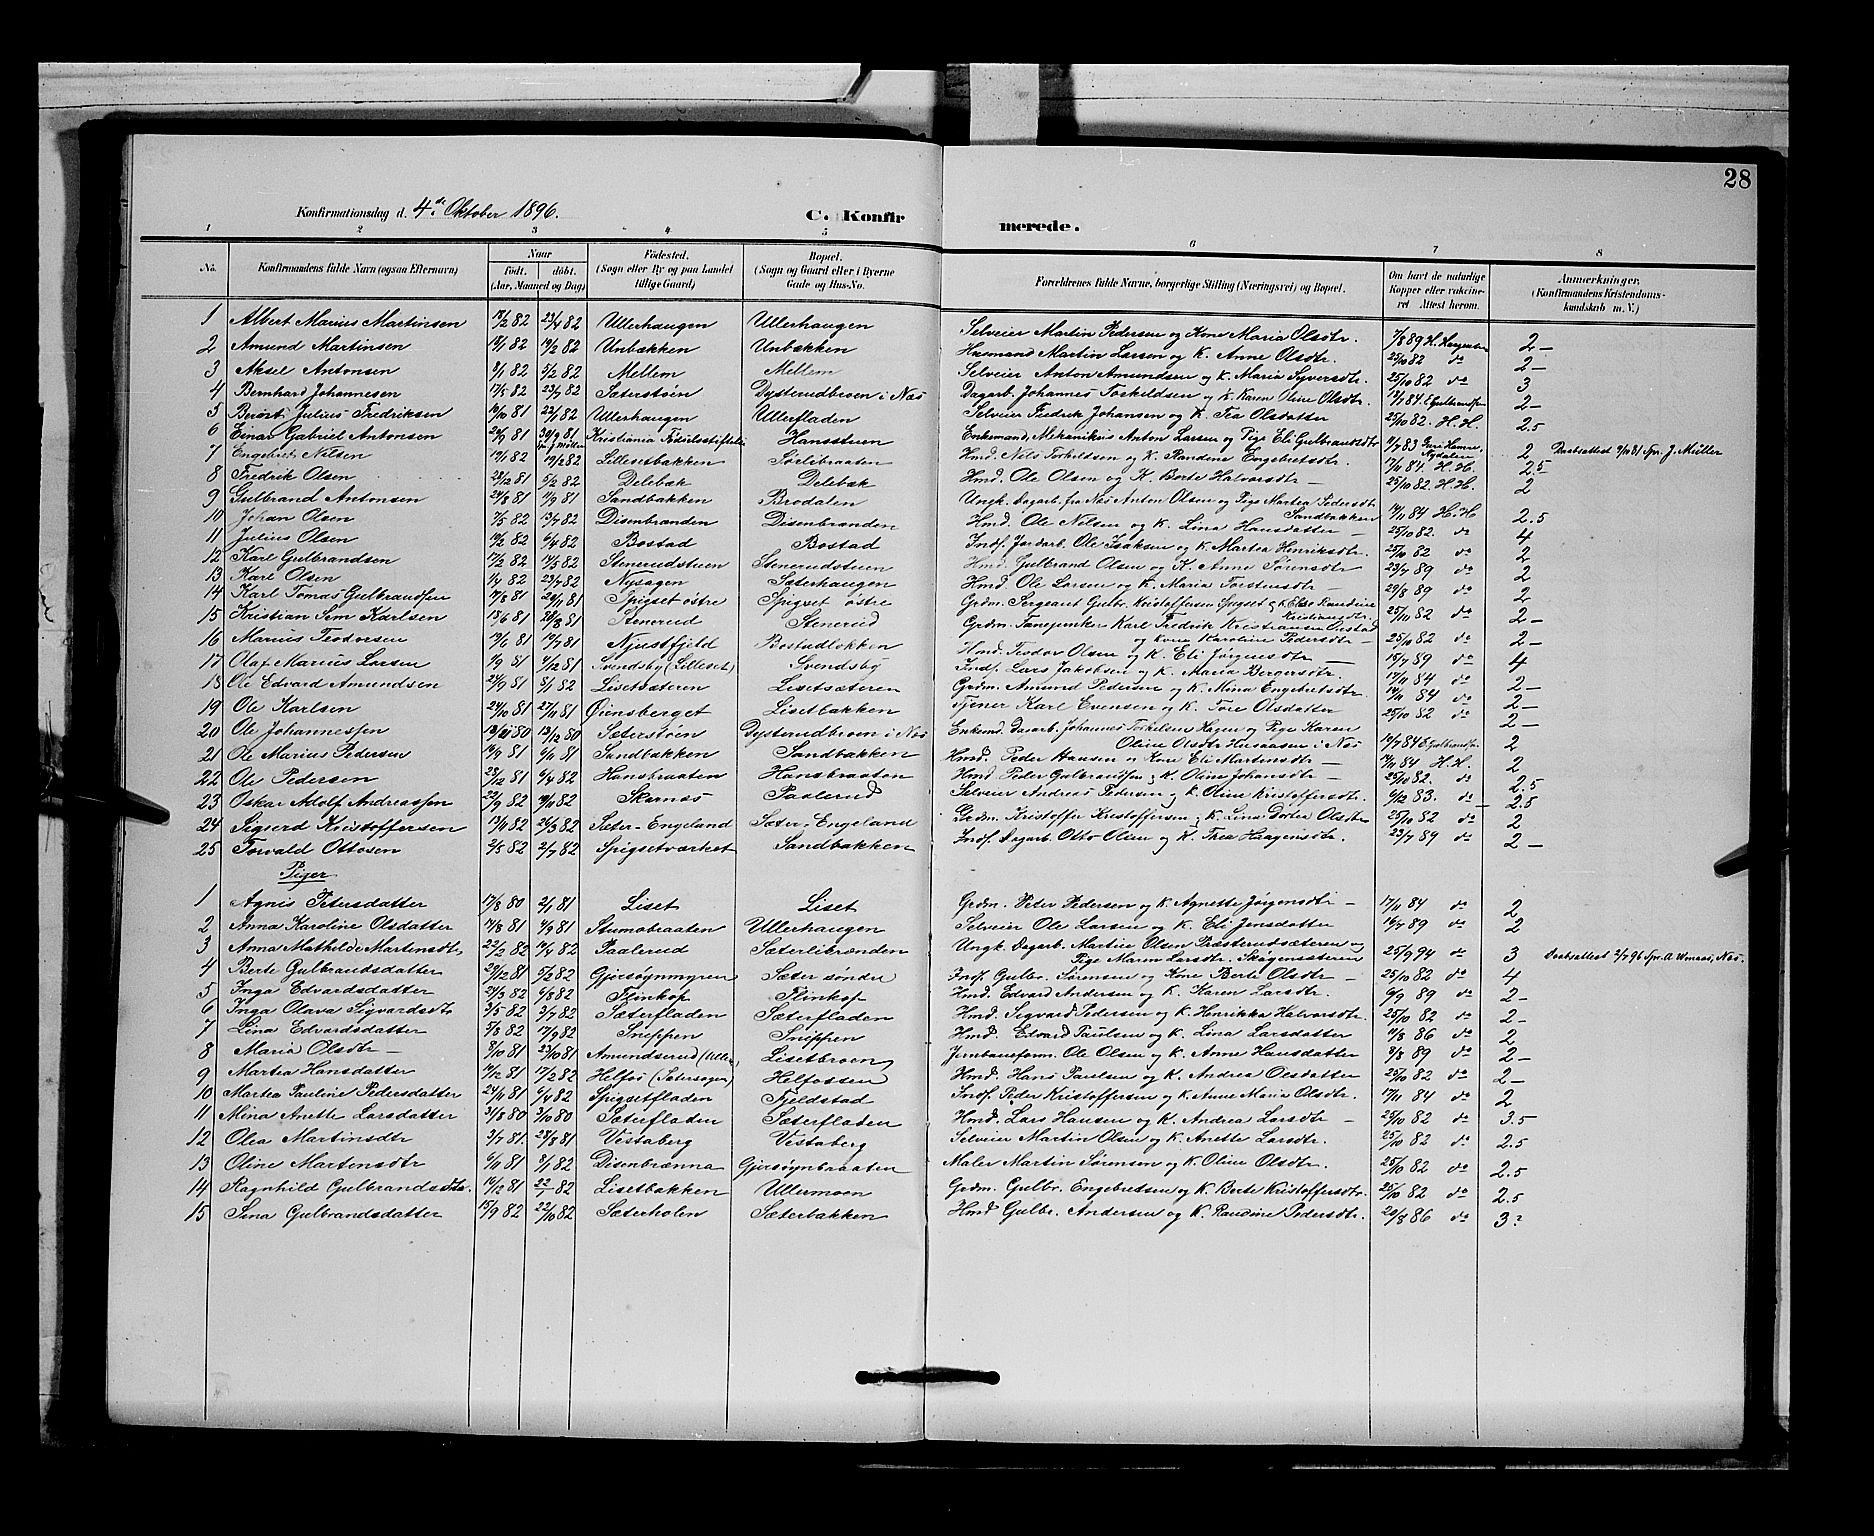 28
Konfirmationsdag d. 4de Oktober 1896.
C. Konfirmerede.
1 2 3 4 5 6 7 8
No. Konfirmandens fulde Navn (ogsaa Efternavn) Naar født. døbt. (Aar, Maaned og Dag) Fødested. (Sogn eller By og paa Landet tillige Gaard) Bopæl. (Sogn og Gaard eller i Byerne Gade og Hus-No. Forældrenes fulde Navne, borgerlige Stilling (Næringsvei) og Bopæl. Om havt de naturlige Kopper eller vakcineret Attest herom. Anmerkninger. (Konfirmandens Kristendomskundskab m. V.)
1 Albert Marius Martinsen 82 23/4 82 Ullerhaugen Ullerhaugen Selveier Martin Pedersen og Kone Maria Olsdtr. 7/8 89 2-
2 Amund Martinsen 82 19/2 82 Unbakken Unbakken Husmand Martin Larsen og K. Anne Olsdtr. 25/10 82 do 2-
3 Aksel Antonsen 9/1 82 5/2 82 Mellem Mellem Selveier Anton Amundsen og K. Maria Syversdtr. 25/10 82 do 3
4 Bernhard Johannesen 17/5 82 23/7 82 Sæterstøen Dysterudbroen i Næs Dagarb. Johannes Torkildsen og K. Karen Oline Olsdtr. 19/7 84 E. Gulbrandsen 2-
5 Julius Fredriksen 81 22/1 82 Ullerhaugen Ullerfladen Selveier Fredrik Johansen og K. Olsdatter 25/10 82. H. H. 2.5
6 Einar Gabriel Antonsen 20/9 81 30/9 81 Kristiania Fødselsstiftelse Hansstuen Enkemand, Mekanikus Anton Larsen og Pige Eli Gulbrandsdtr 83 Nydalen 2 Daabsattest 81 Spr. J. Müller
7 Engebret Nilsen 19/1 82 19/2 82 Lillesetbakken Sørlibraaten Hmd. Nils Torkeldsen og K. Randine Engebretsdtr. 84. H. H. 2.5
8 Fredrik Olsen 28/12 81 5/2 82 Delebæk Delebæk Hmd. Ole Olsen og K. Berte Halvorsdtr 25/10 82. H. H. 2
9 Gulbrand Antonsen 24/7 81 11/9 81 Sandbakken Brodalen Ungk. Dagarb. fra Næs Anton Olsen og Pige Martea Pedersdtr Sandbakken 84 H. H 2.5
10 Johan Olsen 7/5 82 13/7 82 Disenbrænden Disenbrænden Hmd. Ole Nilsen og K. Lina Hansdatter 25/10 82. do 4
11 Julius Olsen 82 9/4 82 Bostad Bostad Indf. Jordarb. Ole Isaksen og K. Martea Henriksdtr. 25/10 82 do 2
12 Karl Gulbrandsen 17/2 82 14/5 82 Stenerudstuen Stenerudstuen Hmd. Gulbrand Olsen og K. Anne Sørensdtr. 23/7 89 do 2
13 Karl Olsen 1/4 82 23/7 82 Nysagen Sæterhaugen Hmd. Ole Larsen og K. Maria Torstensdtr. 29/8 89 do 2
14 Karl Tomas Gulbrandsen 17/8 81 20/11 81 Spigset østre Spigset østre Grdm. Sergeant Gulbr. Kristoffersen Spigset og K. Else Randine Kristiansdtr. 25/11 82 do 2-
15 Kristian Sem Karlsen 15/6 81 28/8 81 Stenerud Stenerud Grdm. Fanejunker Karl Fredrik Kristiansen Ovstad og Kone Karoline Pedersdtr 25/10 82 do 2-
16 Marius Teodorsen 19/6 81 19/7 81 Njustfjeld Bostadløkken Hmd. Teodor Olsen og K. Eli Jørgensdtr 15/7 89 do 4
17 Olaf Marius Larsen 1/9 81 4/12 81 Svendsby (Lilleset) Svendsby Indf. Lars Jakobsen og K. Maria Bergersdtr 17/11 84 do 2-
18 Ole Edvard Amundsen 24/9 81 8/1 82 Lisetsæteren Lisetsæteren Grdm. Amund Pedersen og K. Mina Engebretsdtr 84 do 2-
19 Ole Karlsen 24/10 81 27/11 81 Øiensberget Lisetbakken Tjener Karl Evensen og K. Tore Olsdatter 25/10 82 do 2-
20 Ole Johannessen 80 13/12 80 Sæterstøen Dysterudbroen i Næs Enkemd. Dagarb. Johannes Torkelsen Hagen og Pige Karen Oline Olsdtr Husaasen i Næs 19/7 84 E. Gulbrandsen 2
21 Ole Marius Pedersen 81 6/11 81 Sandbakken Sandbakken Hmd. Peder Hansen og Kone Eli Martensdtr 17/11 84 H. H. 2
22 Ole Pedersen 28/12 81 9/4 82 Hansbraaten Hansbraaten Hmd. Peder Gulbrandsen og K. Oline Johansdtr 25/10 82. do 2.5
23 Oskar Adolf Andreassen 22/9 82 82 Skarnæs Paalerud Selveier Andreas Pedersen og K. Oline Kristoffersdtr. 6/12 83. do 2.5
24 Sigurd Kristoffersen 82 26/3 82 Sæter-Engeland Sæter-Engeland Grdm. Kristoffer Kristoffersen og K. Lina Dortea Olsdtr 25/10 82 do 2
25 Torvald Ottosen 2/5 82 2/7 82 Spigsetværket Sandbakken Indf. Dagarb. Otto Olsen og K. Thea Haagensdtr. 23/7 89 do 2-
Piger
1 Agnes Petersdatter 17/8 80 2/1 81 Liset Liset Grdm. Peder Pedersen og K. Agnette Jørgensdtr 17/11 84 do 2
2 Anna Karoline Olsdatter 14/8 81 4/9 81 Stumobraaten Ullerhaugen Selveier Ole Larsen og K. Eli Jensdatter 16/7 89 do 2
3 Anna Mathilde Martinsdtr 22/2 82 82 Paalerud Sæterlibrænden Ungk. Dagarb. Martin Olsen Præsterudsæteren og Pige Maren Larsdtr. Skøgensæteren 25/9 94 do 3 Daabsattest 2/7 96 Spr. A. Næs.
4 Berte Gulbrandsdatter 29/12 81 5/2 82 Gjersøynmyren Sæter søndre Indf. Gulbr. Sørensen og Kone Berte Olsdtr 25/10 82 do 4
5 Inga Edvardsdatter 24/3 82 6/8 82 Flinkop Flinkop Hmd. Edvard Andersen og K. Karen Larsdtr. 6/9 89 do 2-
6 Inga Olava Sigvardsdtr 3/5 82 2/7 82 Sæterfladen Sæterfladen Hmd. Sigvard Pedersen og K. Henrikka Halvorsdtr. 25/10 82 do 2-
7 Lina Edvardsdatter 5/8 82 17/9 82 Sneppen Sneppen Hmd. Edvard Paulsen og K. Lina Larsdatter 86 do 2
8 Maria Olsdtr 8/10 81 23/10 81 Amundsrud (Uller) Lisetbroen Jernbaneform. Ole Olsen og K. Anne Hansdatter 9/8 89 do 2-
9 Martea Hansdatter 81 17/2 82 Helfos (Sætersagen) Helfossen Hmd. Hans Paulsen og K. Andrea Olsdatter 25/10 82 do 2-
10 Martea Pauline Pedersdatter 24/11 81 9/4 82 Spigsetfladen Fjeldstad Indf. Peder Kristoffersen og K. Anne Maria Olsdtr. 17/11 84 do 2
11 Mina Anette Larsdatter 31/8 80 3/10 80 Sæterfladen Sæterfladen Hmd. Lars Hansen og K. Andrea Larsdtr 25/10 82 do 3.5
12 Olea Martinsdtr 3/7 81. 28/8 81 Vestaberg Vestaberg Selveier Martin Olsen og K. Anette Larsdtr. 25/10 82 do 2.5
13 Oline Martensdtr 6/11 81 8/1 82 Disenbrænna Gjersøynbraaten Maler Martin Sørensen og K. Oline Olsdtr. 25/10 82 do 2.5
14 Ragnhild Gulbrandsdtr. 81 22/1 82 Lisetbakken Ullermoen Grdm. Gulbr. Engebretsen og K. Berte Kristoffersdtr 25/10 82 do 2.5
15 Sina Gulbrandsdatter 15/9 82 22/10 82 Sæterholen Sæterbakken Hmd Gulbr. Andersen og K. Randine Pedersdtr. 20/8 86 do 3.